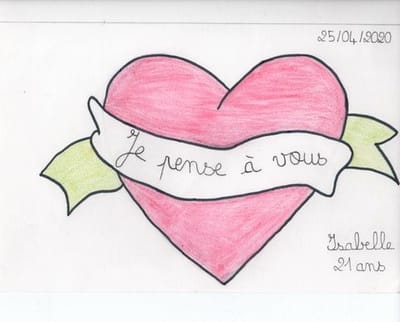 25/04/2020
Je pense à vous
Isabelle
21 ans